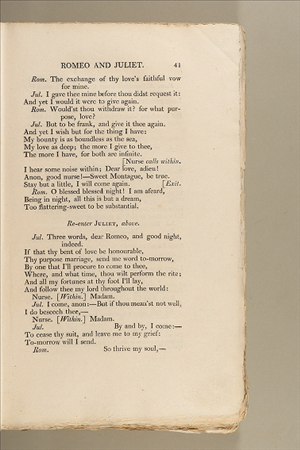 ROMEO AND JULIET. 41
Rom. The exchange of thy love's faithful vow
for mine.
Jul. I gave thee mine before thou didst request it:
And yet I would it were to give again.
Rom. Would'st thou withdraw it? for what pur-
pose, love?
Jul. But to be frank, and give it thee again.
And yet I wish but for the thing I have:
My bounty is as boundless as the sea,
My love as deep; the more I give to thee,
The more I have, for both are infinite.
[Nurse calls within.
I hear some noise within; Dear love, adieu!
Anon, good nurse!—Sweet Montague, be true.
Stay but a little, I will come again. [Exit.
Rom. O blessed blessed night! I am afeard,
Being in night, all this is but a dream,
Too flattering-sweet to be substantial.
Re-enter JULIET, above.
Jul. Three words, dear Romeo, and good night,
indeed.
If that thy bent of love be honourable,
Thy purpose marriage, send me word to-morrow,
By one that I'll procure to come to thee,
Where, and what time, thou wilt perform the rite;
And all my fortunes at thy foot I'll lay,
And follow thee my lord throughout the world:
Nurse. [Within.] Madam.
Jul. I come, anon:—But if thou mean'st not well,
I do beseech thee,—
Nurse. [Within.] Madam.
Jul. By and by, I come:—
To cease thy suit, and leave me to my grief:
To-morrow will I send.
Rom. So thrive my soul,—